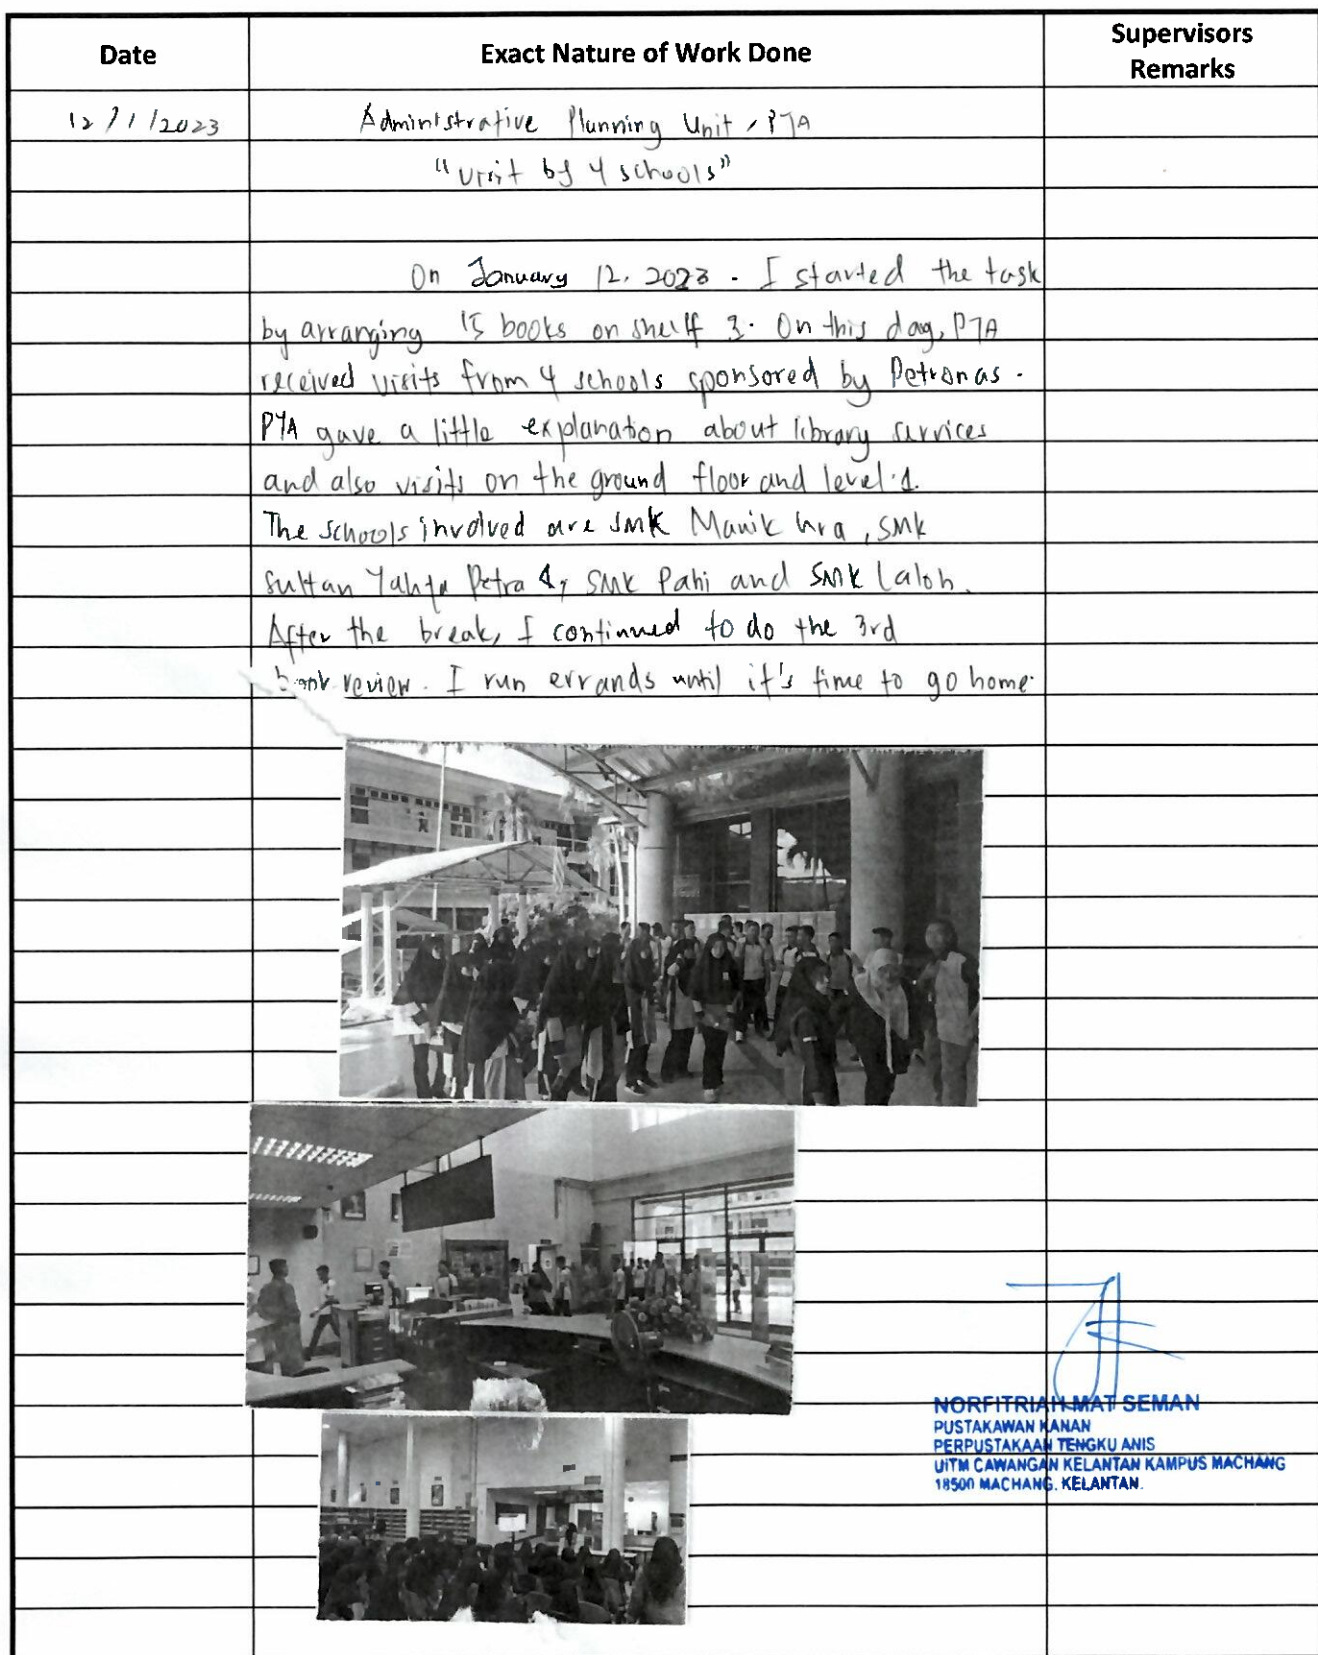 Date
Exact Nature of Work Done
Supervisors
Remarks
12/1/2023
Administrative Planning Unit, PTA
"Visit by 4 schools"
On January 12, 2023. I started the task
by arranging 15 books on shelf 3. On this day, PTA
received visits from 4 schools sponsored by Petronas.
PTA gave a little explanation about library services
and also visits on the ground floor and level 1.
The schools involved are SMK Manik Urai, SMK
Sultan Yahya Petra 1, SMK Pahi and SMK Laloh.
After the break, I continued to do the 3rd
book review. I run errands until it's time to go home.
NORFITRIAH MAT SEMAN
PUSTAKAWAN KANAN
PERPUSTAKAAN TENGKU ANIS
UITM CAWANGAN KELANTAN KAMPUS MACHANG
18500 MACHANG. KELANTAN.